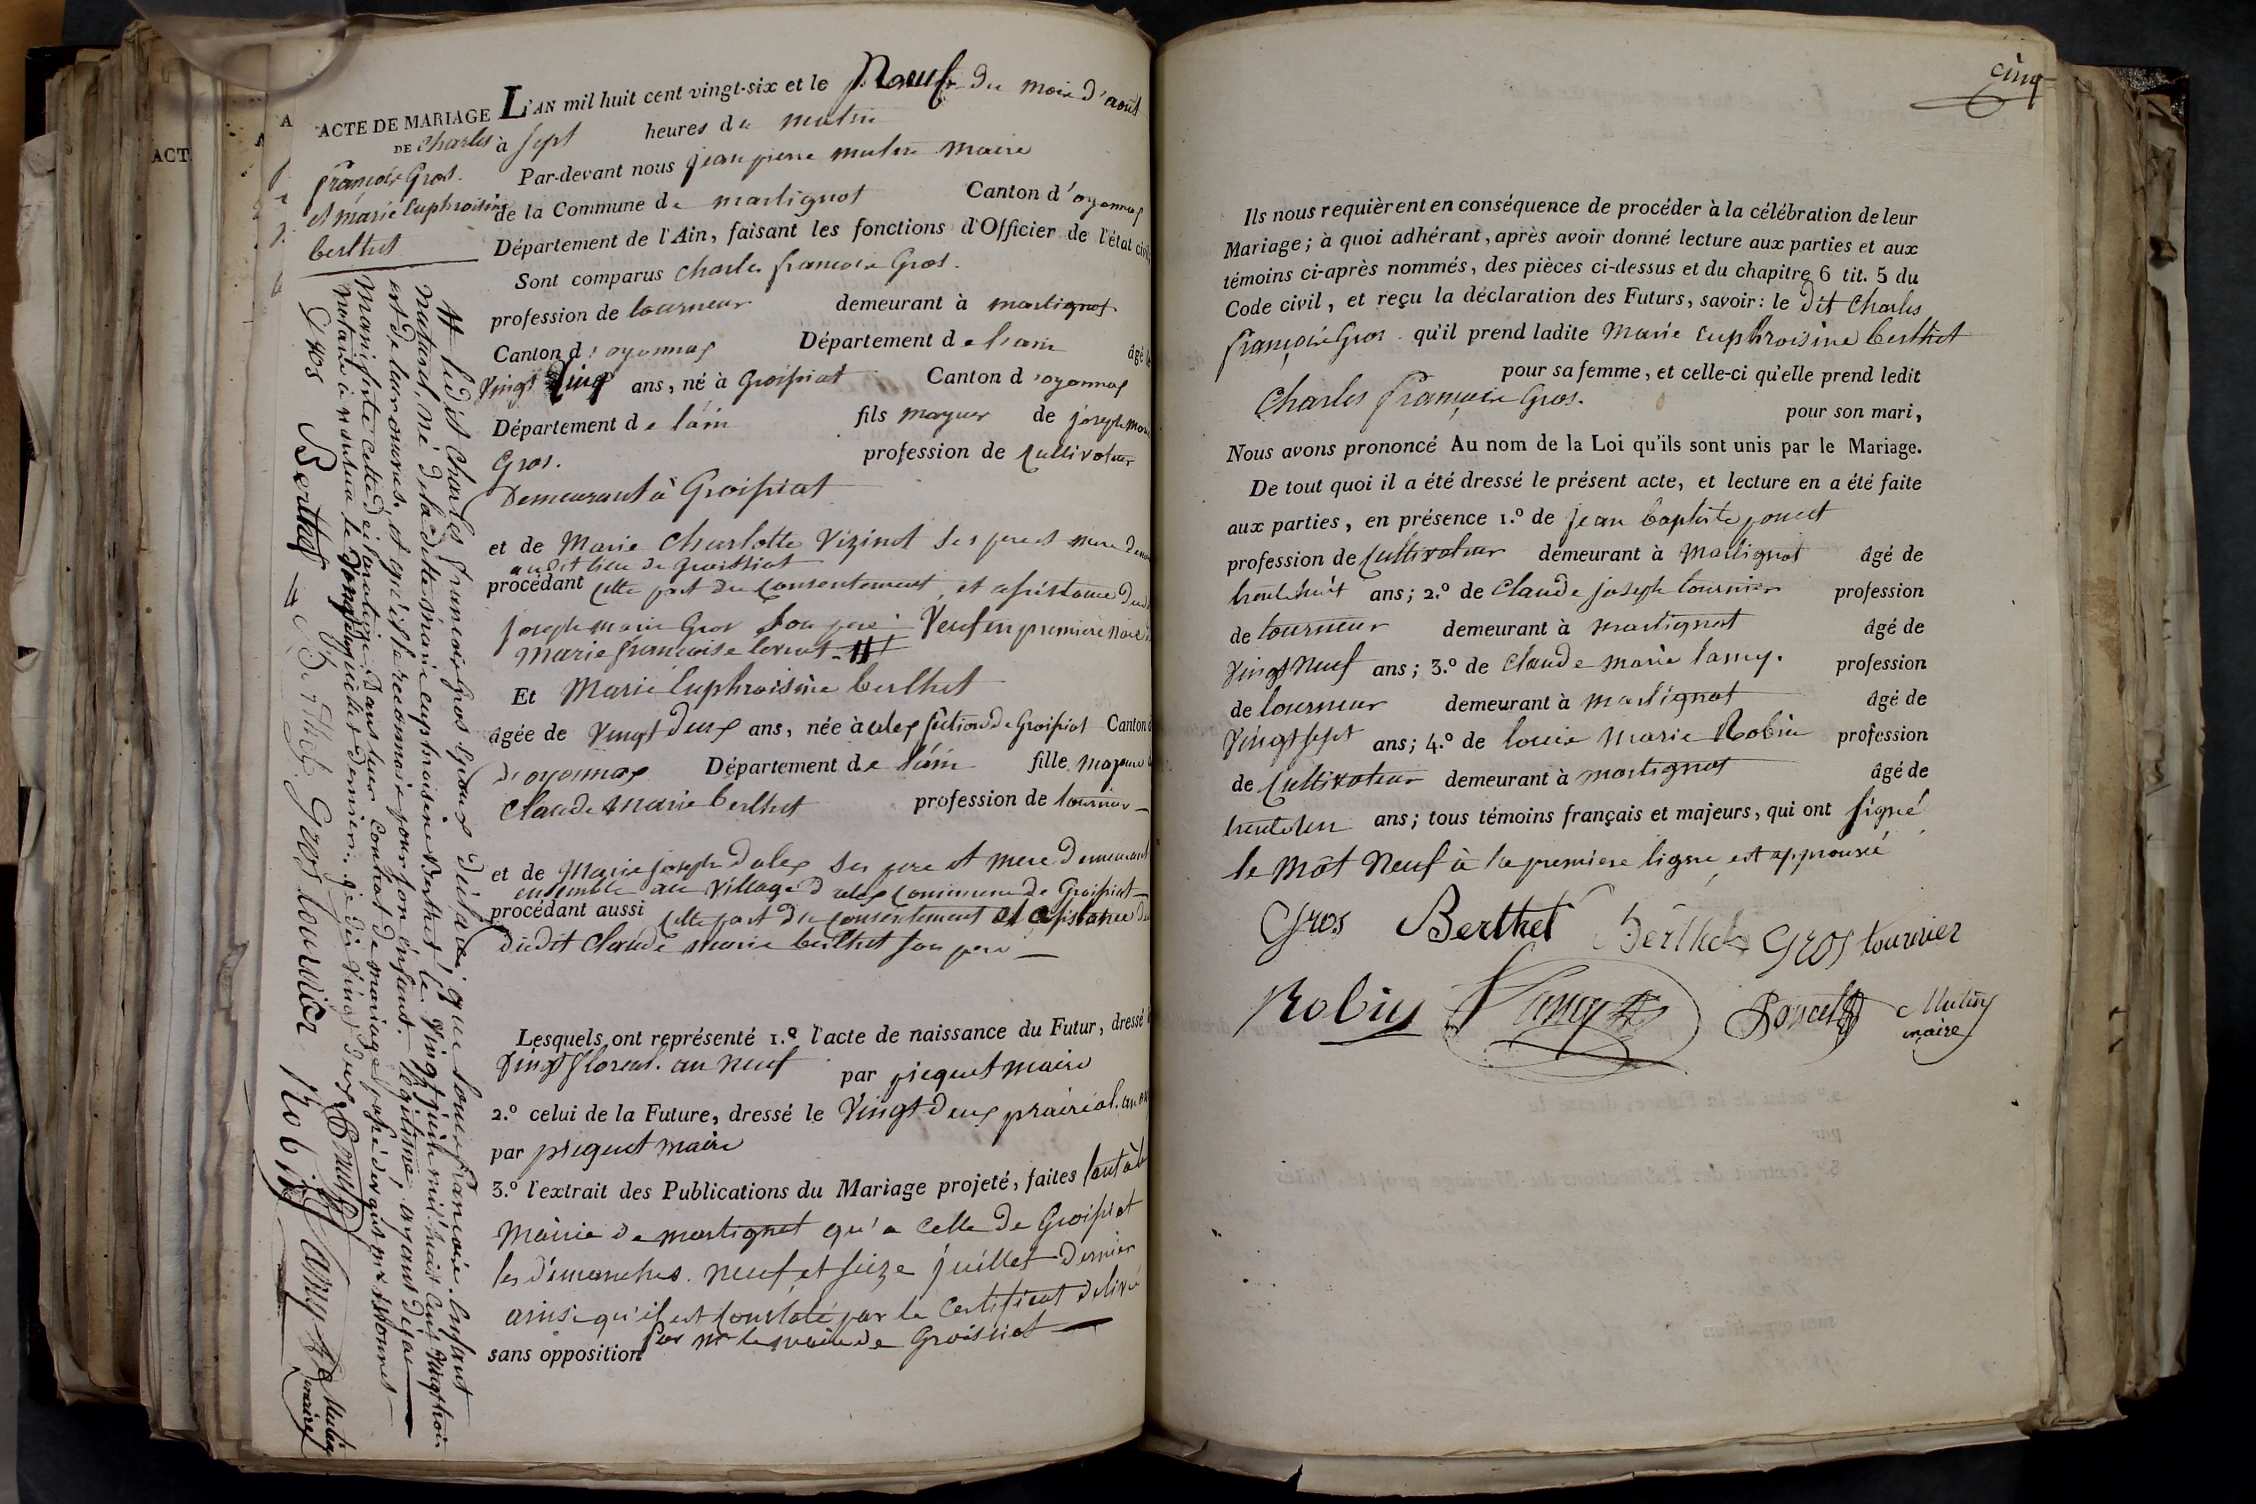 ACTE DE MARIAGE
DE Charles
françois Gros.
et marie Euphroisine
berthet
L'AN mil huit cent vingt-six et le Neuf du mois d'aout
à sept heures du matin
Par-devant nous jean pierre mutin maire
de la Commune de martignat Canton d'oyonnax
Département de l'Ain, faisant les fonctions d'Officier de l'état civil
Sont comparus Charles francois Gros.
profession de tourneur demeurant à martignat
Canton d'oyonnax Département de l'ain âgé
Vingt Cinq ans, né à Groissiat Canton d'oyonnax
Département de l'ain fils mayeur de joseph marie
Gros. profession de Cultivateur
Demeurant à Groissiat
et de Marie Charlotte Vizinet ses pere et mere
audit lieu de Groissiat
procédant cette part du Consentement, et assistance dudit
joseph marie Gros son pere Veuf en premiere
Marie françoise
Et Marie Euphroisine berthet
âgée de Vingt deux ans, née à alex section de Groissiat Canton
d'oyonnax Département de l'ain fille majeure
Claude Marie berthet profession de
et de Marie joseph dalex ses pere et mere demeurant
ensemble au Village d'alex Commune de Groissiat
procédant aussi cette part du Consentement et assistance
dudit Claude marie berthet son pere
Lesquels ont représenté 1.º l'acte de naissance du Futur, dressé
Vingt floreal. an neuf par piequet maire
2.º celui de la Future, dressé le Vingt deux prairial. an
par piequet maire
3.º l'extrait des Publications du Mariage projeté, faites tant à la
Mairie de martignat qu'a celle de Groissiat
les dimanches. neuf et seize juillet dernier
ainsi qu'il est constaté par le Certificat delivré
sans opposition par mr le maire de Groissiat
ledit Charles francois Gros Epoux déclare que louis françois. Enfant
naturel, né de la ditte marie euphroisine berthet le Vingt juin mil huit cent vingt trois
est de leur œuvres, et qu'il le reconnaît pour son enfant. légitime, ayant déjà
Manifesté cette déclaration dans leur Contrat de mariage passé devant me
Notaire à nantua le Vingt deux
Gros Berthet Berthet Gros tournier Robin Lamy Mutin
maire
cinq
Ils nous requièrent en conséquence de procéder à la célébration de leur
Mariage; à quoi adhérant, après avoir donné lecture aux parties et aux
témoins ci-après nommés, des pièces ci-dessus et du chapitre 6 tit. 5 du
Code civil, et reçu la déclaration des Futurs, savoir: le dit Charles
françois Gros qu'il prend ladite Marie Euphroisine berthet
pour sa femme, et celle-ci qu'elle prend ledit
Charles françois Gros. pour son mari,
Nous avons prononcé Au nom de la Loi qu'ils sont unis par le Mariage.
De tout quoi il a été dressé le présent acte, et lecture en a été faite
aux parties, en présence 1.º de jean baptiste poncet
profession de Cultivateur demeurant à Martignat âgé de
trente huit ans; 2.º de Claude joseph tournier profession
de tourneur demeurant à martignat âgé de
Vingt Neuf ans; 3.º de Claude marie lamy. profession
de tourneur demeurant à martignat âgé de
Vingt sept ans; 4.º de louis Marie Robin profession
de Cultivateur demeurant à martignat âgé de
trente un ans; tous témoins français et majeurs, qui ont signé
le môt Neuf à la premiere ligne, est approuvé
Gros Berthet Berthet Gros tournier
Robin Lamy Poncet Mutin
maire